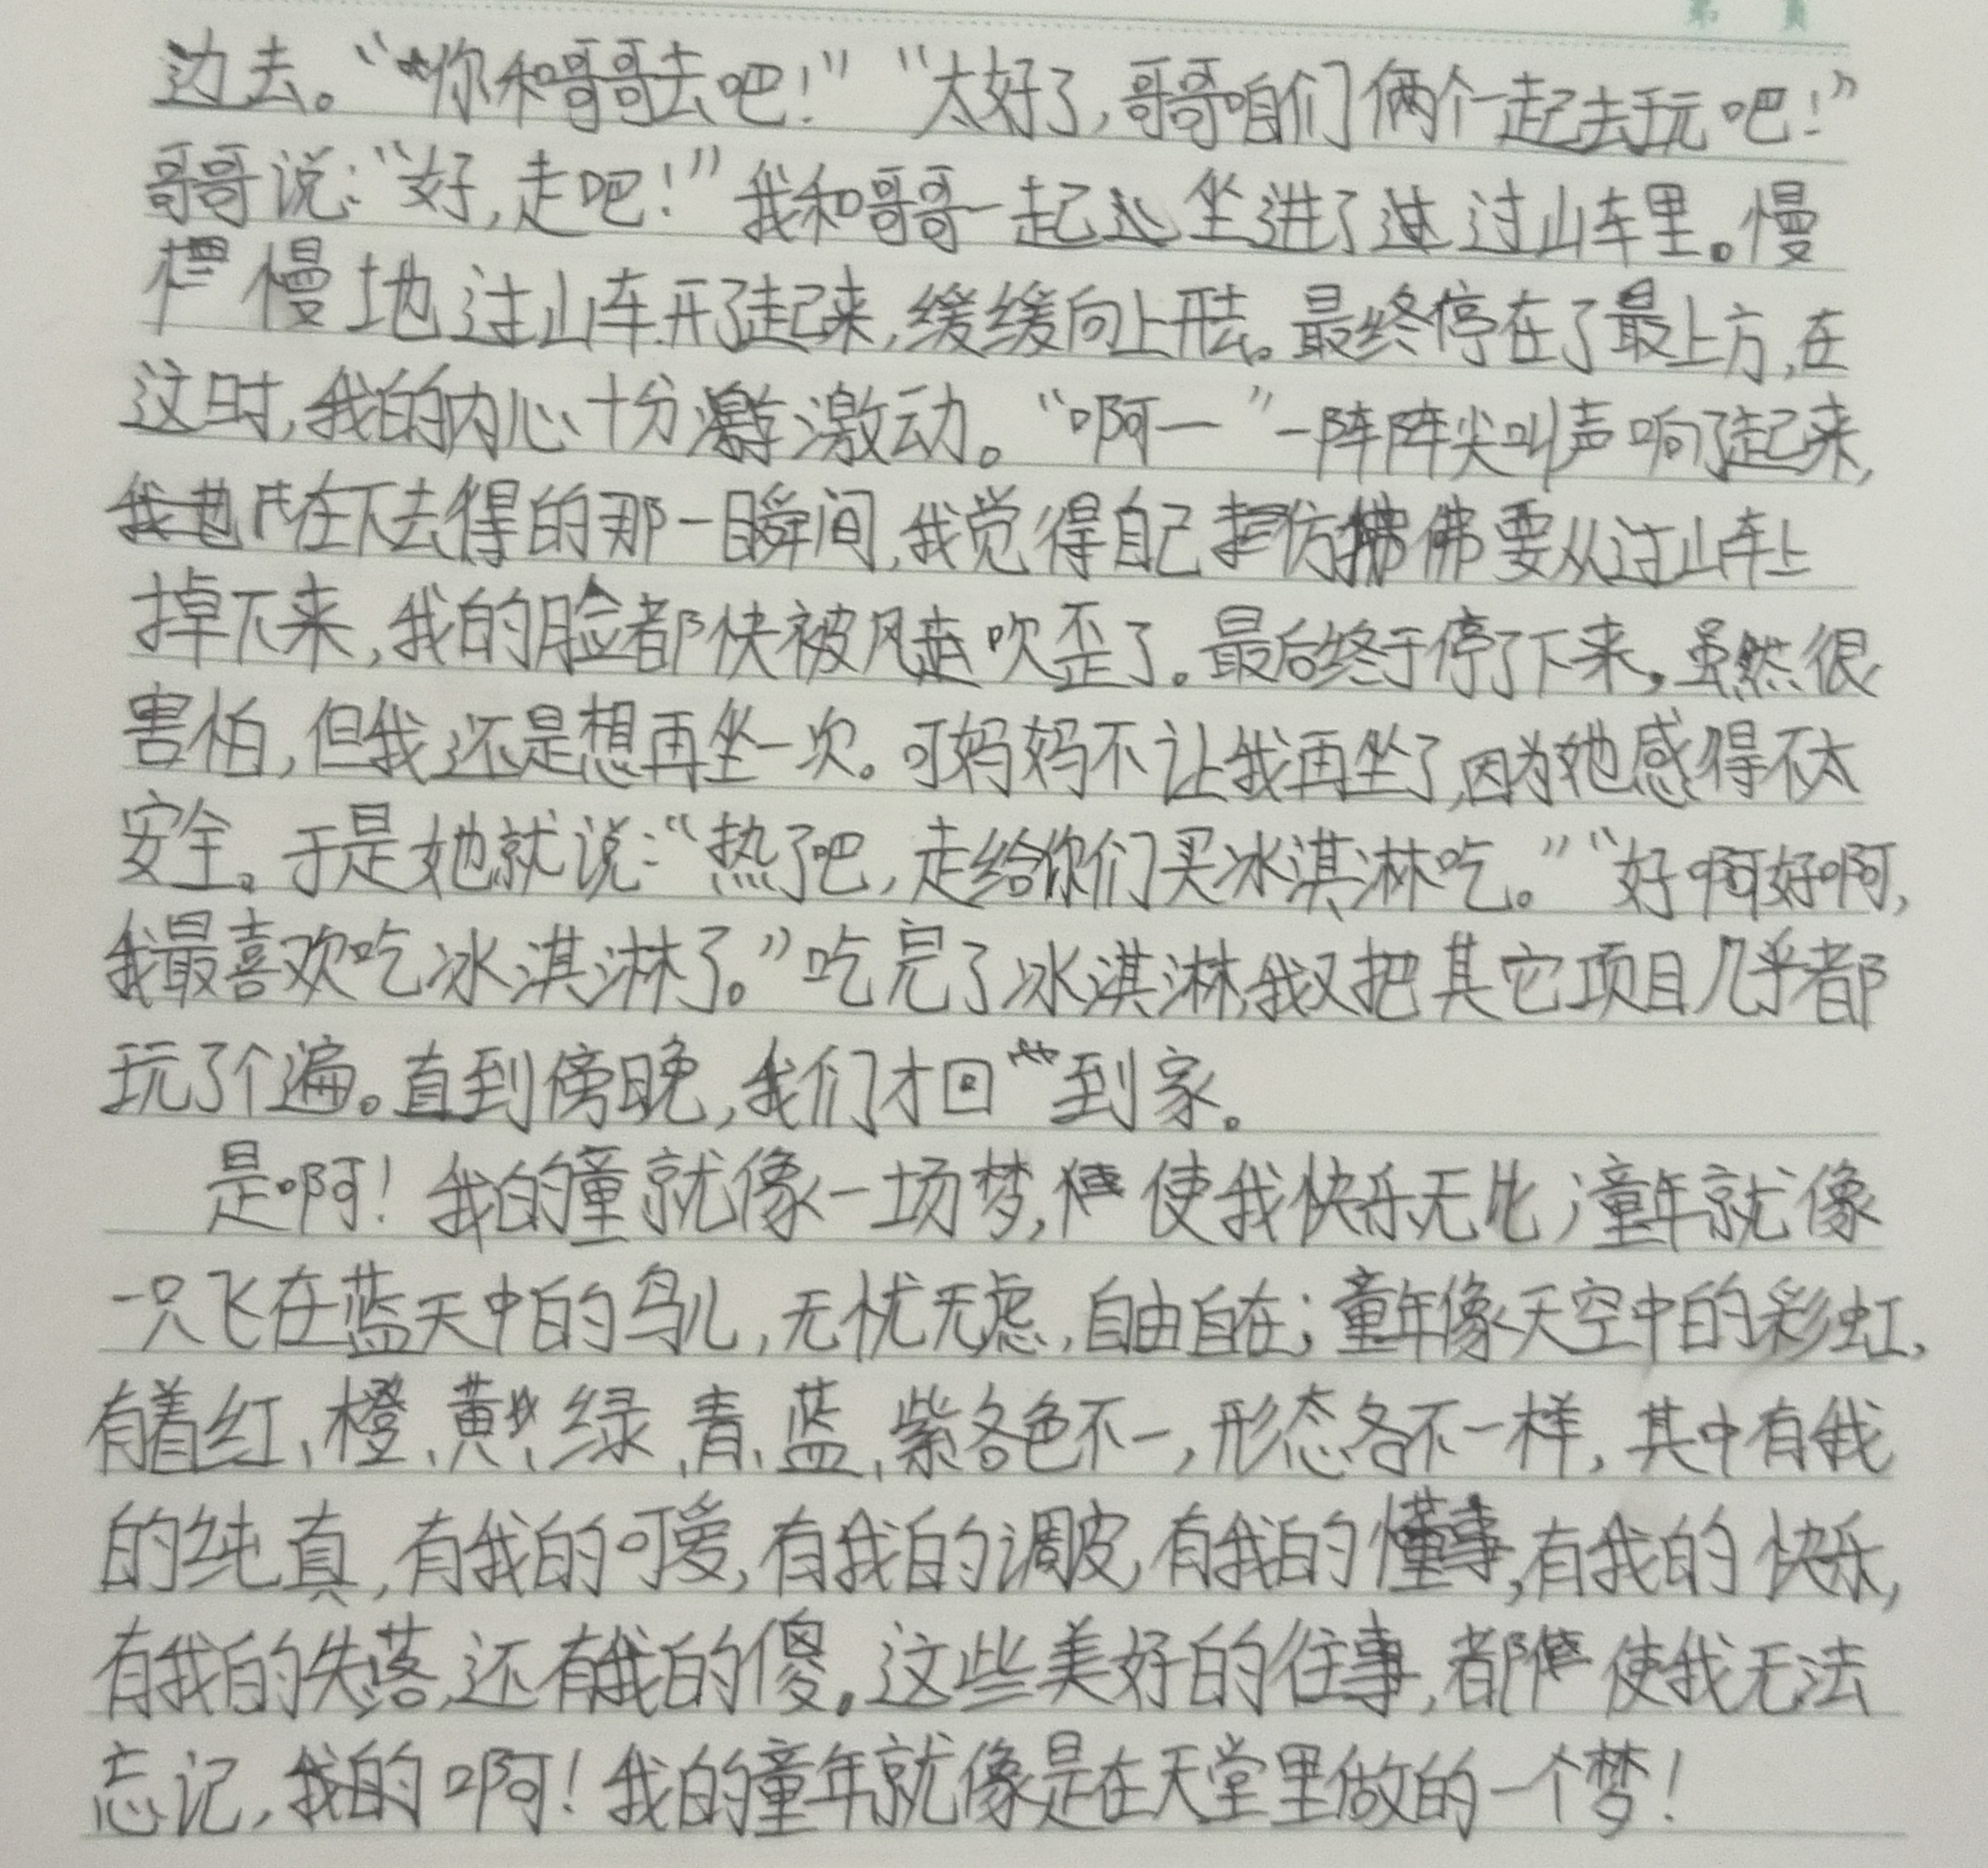 第 頁
边去。“你和哥哥去吧！”“太好了，哥哥咱们俩个一起去玩吧！”
哥哥说：“好，走吧！”我和哥哥一起坐进了过山车里。慢
慢地过山车开了起来，缓缓向上开去。最终停在了最上方，在
这时，我的内心十分激动。“啊一”一阵阵尖叫声响了起来，
在下去得的那一瞬间，我觉得自己仿佛要从过山车上
掉下来，我的脸都快被风吹歪了。最后终于停了下来，虽然很
害怕，但我还是想再坐一次。可妈妈不让我再坐了，因为她感得不太
安全。于是她就说：“热了吧，走给你们买冰淇淋吃。”“好啊好啊，
我最喜欢吃冰淇淋了。”吃完了冰淇淋，我又把其它项目几乎都
玩了个遍。直到傍晚，我们才回到家。
是啊！我的童就像一场梦，使我快乐无比；童年就像
一只飞在蓝天中的鸟儿，无忧无虑，自由自在；童年像天空中的彩虹，
有着红、橙、黄、绿、青、蓝、紫各色不一，形态各不一样，其中有我
的纯真，有我的可爱，有我的调皮，有我的懂事，有我的快乐，
有我的失落，还有我的傻。这些美好的往事，都使我无法
忘记，我的啊！我的童年就像是在天堂里做的一个梦！